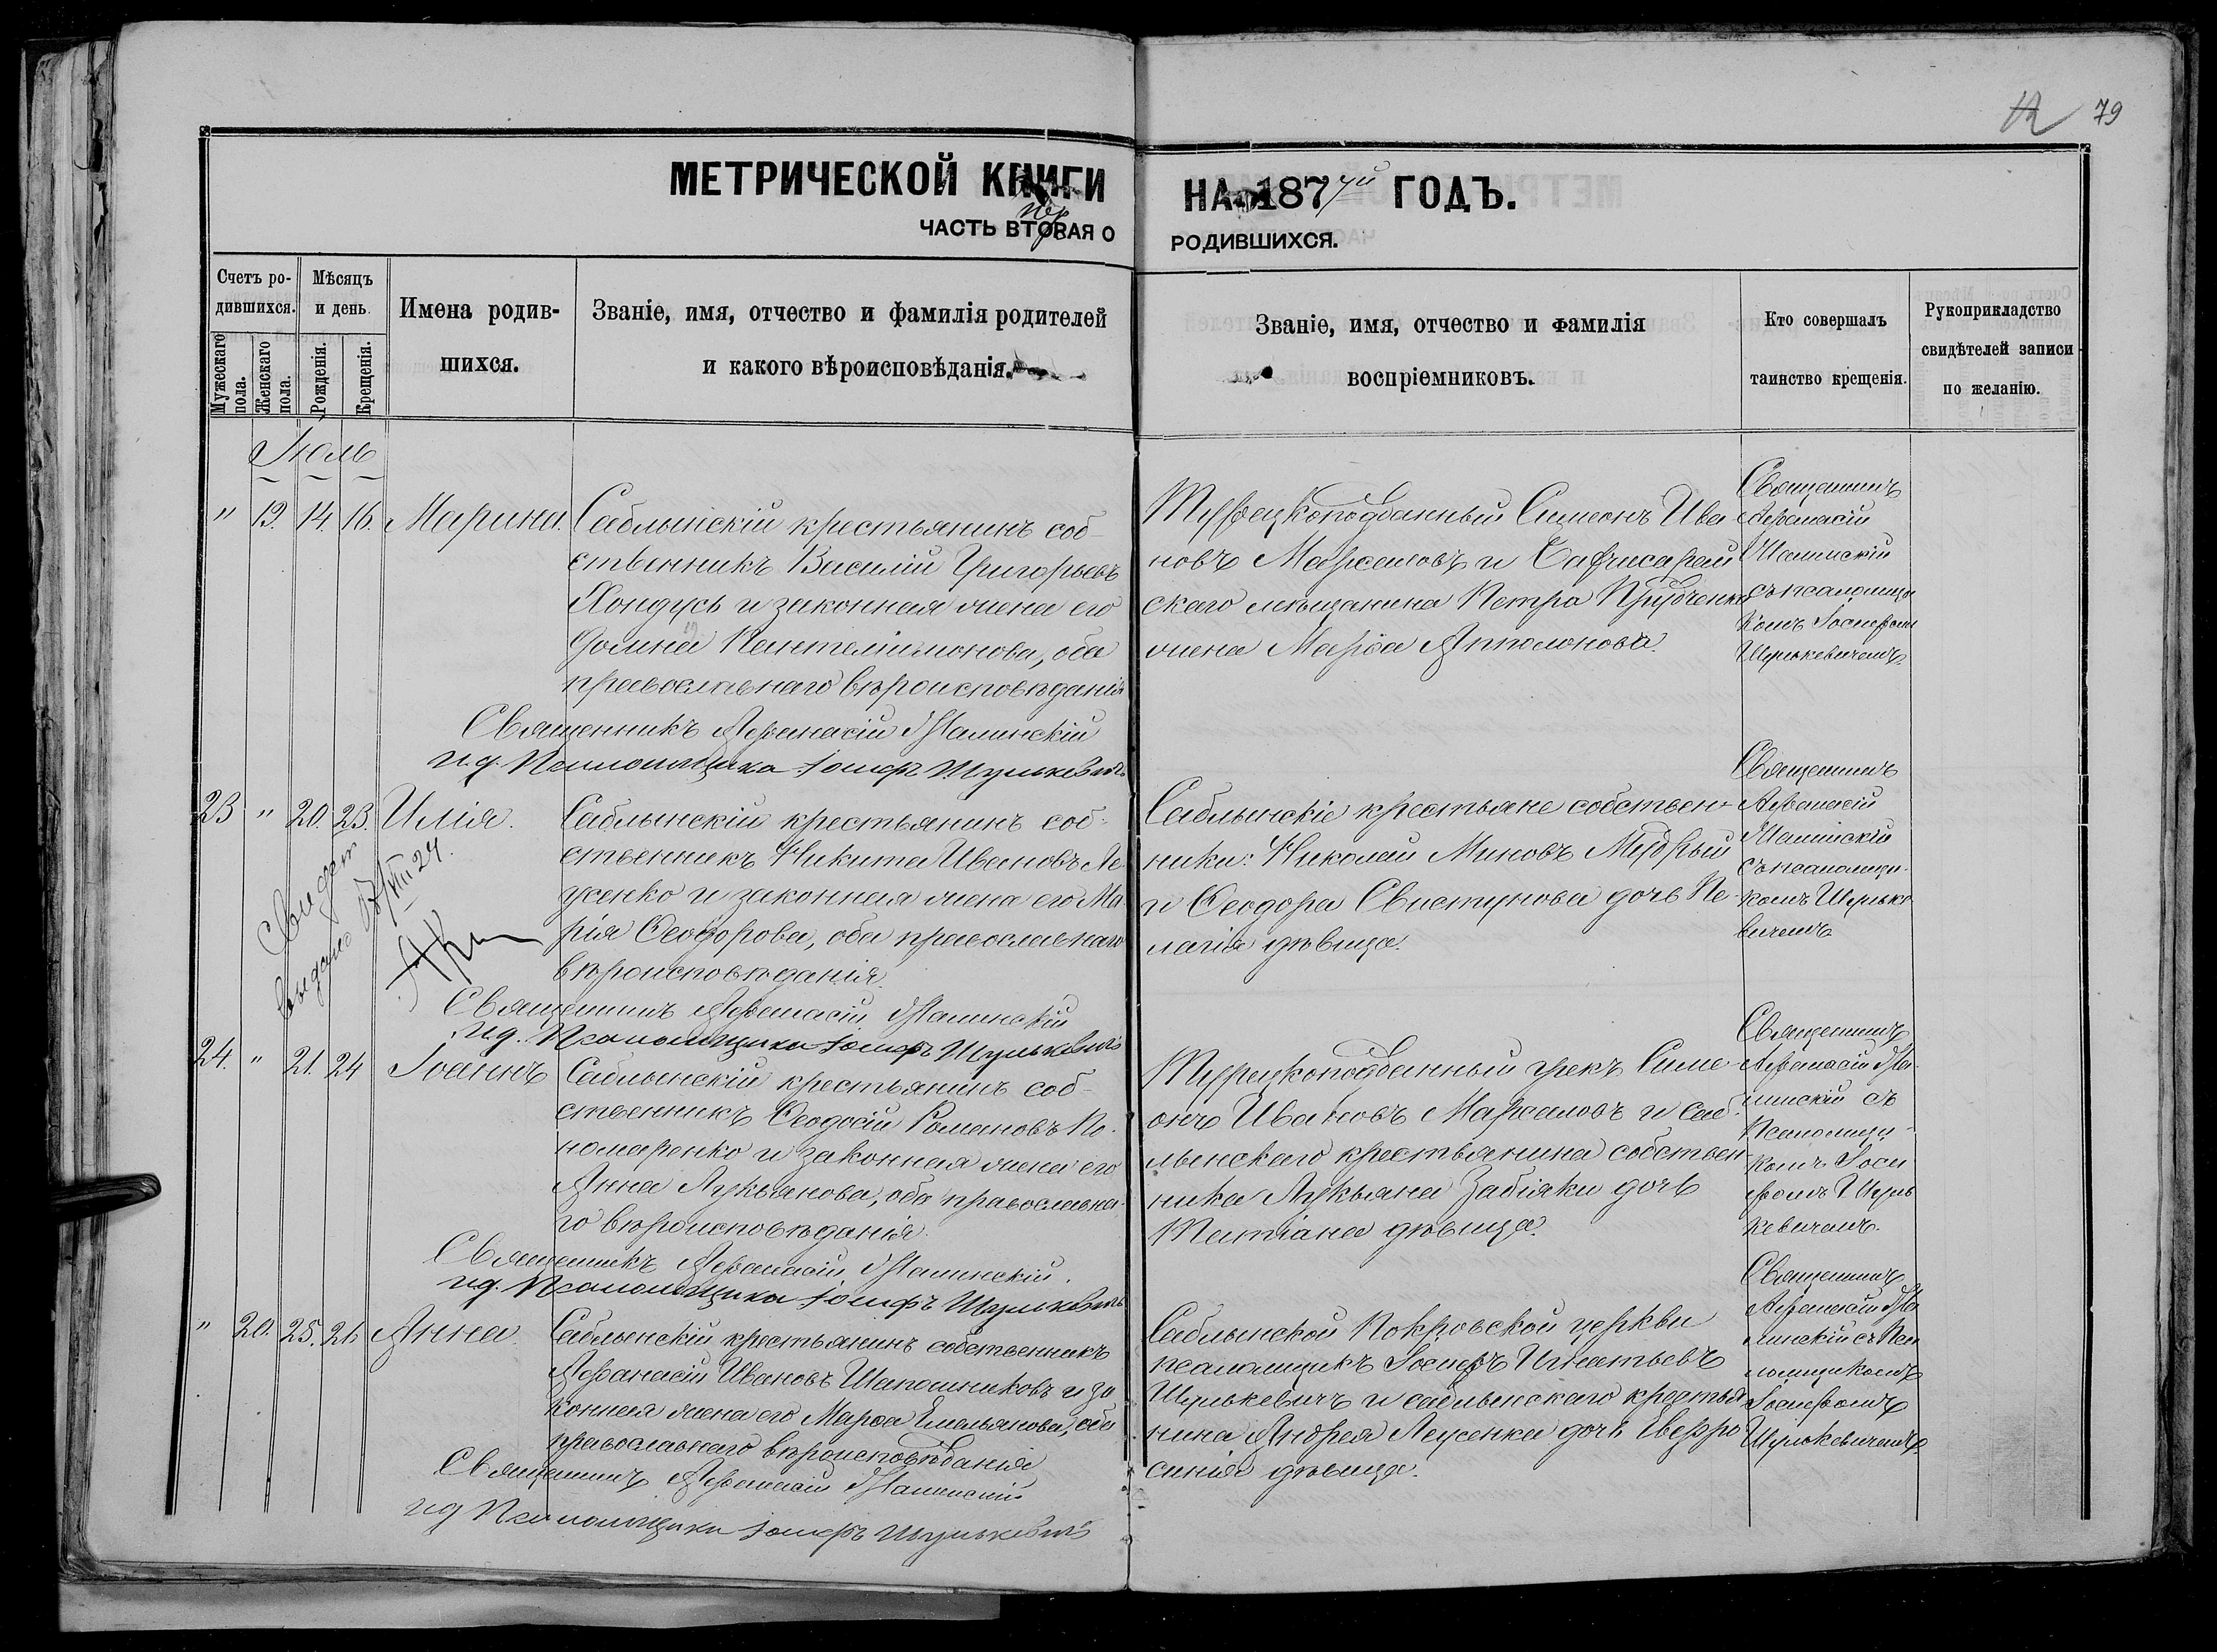 79
МЕТРИЧЕСКОЙ КНИГИ НА 1877й ГОДЪ.
ЧАСТЬ ВТОРАЯ О РОДИВШИХСЯ.
пер
Счетъ родившихся.
Мужескаго пола.
Женскаго пола.
Мѣсяцъ и день.
Рожденія.
Крещенія.
Имена родив-
шихся.
Званіе, имя, отчество и фамилія родителей
и какого вѣроисповѣданія.
Званіе, имя, отчество и фамилія
воспріемниковъ.
Кто совершалъ
таинство крещенія.
Рукоприкладство
свидѣтелей записи
по желанію.
Іюль
" 19. 14. 16. Марина.
Саблынскій крестьянинъ соб-
ственникъ Василій Григорьевъ
Хондусь и законная жена его
Пантелиімонова, оба
православнаго вѣроисповѣданія
Священникъ Афанасій
и.д. Псаломщика Іосифъ Шулькевичъ
Турецкоподданный Симеонъ Ива-
новъ Маржановъ и
скаго мѣщанина Петра
жена Марѳа Апполонова.
Священникъ
Афанасій
съ псаломщи
комъ Іосифом
Шулькевичемъ.
23 " 20. 23. Илія.
Саблынскій крестьянинъ соб-
ственникъ Никита Ивановъ Ле-
усенко и законная жена его Ма-
рія Ѳеодорова, оба православнаго
вѣроисповѣданія.
Священникъ Афанасій
и.д. Псаломщика Іосифъ Шулькевичъ
выдано
VIII 24.
Саблынскіе крестьяне собствен-
ники: Николай Миновъ Мудрый
и Ѳеодора Свистунова дочь Пе-
лагія дѣвица.
Священникъ
Афанасій
съ псаломщи-
комъ Шульке
вичемъ
24. " 21. 24 Іоаннъ
Саблынскій крестьянинъ соб-
ственникъ Ѳеодосій Романовъ По-
номаренко и законная жена его
Анна Лукьянова, оба православна-
го вѣроисповѣданія.
Священникъ Афанасій
и.д. Псаломщика Іосифъ Шулькевичъ
Турецкоподданный грекъ Симе-
онъ Ивановъ Маржановъ и саб-
лынскаго крестьянина собствен-
ника Лукьяна Забіяки дочь
Татіана дѣвица.
Священникъ
Афанасій
съ
Псаломщи-
комъ Іоси
фомъ Шуль
кевичемъ.
" 20. 25. 26 Анна
Саблынскій крестьянинъ собственникъ
Афанасій Ивановъ Шапошниковъ и за
конная жена его Марѳа Емельянова, оба
православнаго вѣроисповѣданія
Священникъ Афанасій
ид Псаломщика Іосифъ Шулькевичъ
Саблынской Покровской церкви
псаломщикъ Іосифъ Игнатьевъ
Шулькевичъ и саблынскаго крестья
нина Андрея Леусенка дочь Евфро
синія дѣвица.
Священникъ
Афанасій
съ Пса
ломщикомъ
Іосифомъ
Шулькевичемъ